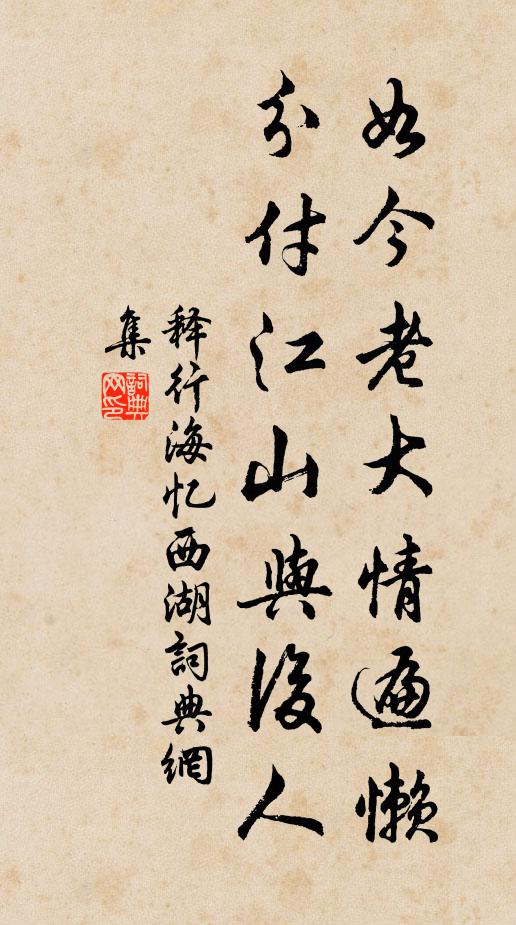 如今老大情遍懒
分付江山與後人
释行海忆西湖詞典網
集
詞典
网印